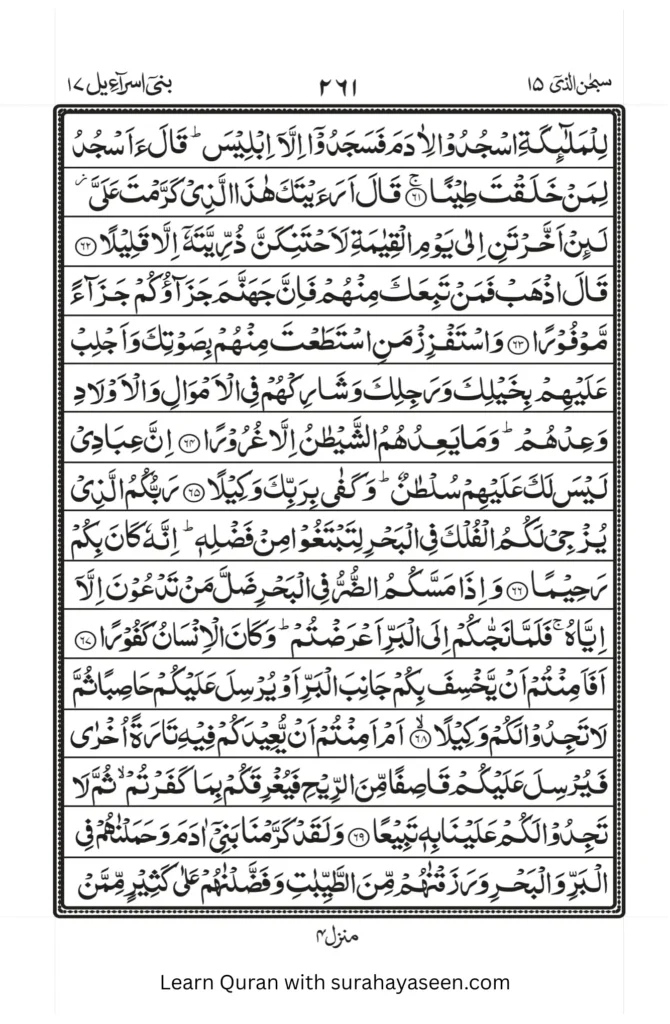 سبحٰن الذیٓ ۱۵
۲۶۱
بنیٓ اسرآءیل ۱۷
لِلْمَلٰٓئِكَةِ اسْجُدُوْا لِاٰدَمَ فَسَجَدُوْۤا اِلَّاۤ اِبْلِیْسَ ؕ قَالَ ءَاَسْجُدُ
لِمَنْ خَلَقْتَ طِیْنًا ۚ﴿۶۱﴾ قَالَ اَرَءَیْتَكَ هٰذَا الَّذِیْ كَرَّمْتَ عَلَیَّ ؗ
لَىِٕنْ اَخَّرْتَنِ اِلٰی یَوْمِ الْقِیٰمَةِ لَاَحْتَنِكَنَّ ذُرِّیَّتَهٗۤ اِلَّا قَلِیْلًا ﴿۶۲﴾
قَالَ اذْهَبْ فَمَنْ تَبِعَكَ مِنْهُمْ فَاِنَّ جَهَنَّمَ جَزَآؤُكُمْ جَزَآءً
مَّوْفُوْرًا ﴿۶۳﴾ وَاسْتَفْزِزْ مَنِ اسْتَطَعْتَ مِنْهُمْ بِصَوْتِكَ وَاَجْلِبْ
عَلَیْهِمْ بِخَیْلِكَ وَرَجِلِكَ وَشَارِكْهُمْ فِی الْاَمْوَالِ وَالْاَوْلَادِ
وَعِدْهُمْ ؕ وَمَا یَعِدُهُمُ الشَّیْطٰنُ اِلَّا غُرُوْرًا ﴿۶۴﴾ اِنَّ عِبَادِیْ
لَیْسَ لَكَ عَلَیْهِمْ سُلْطٰنٌ ؕ وَكَفٰی بِرَبِّكَ وَكِیْلًا ﴿۶۵﴾ رَبُّكُمُ الَّذِیْ
یُزْجِیْ لَكُمُ الْفُلْكَ فِی الْبَحْرِ لِتَبْتَغُوْا مِنْ فَضْلِهٖ ؕ اِنَّهٗ كَانَ بِكُمْ
رَحِیْمًا ﴿۶۶﴾ وَاِذَا مَسَّكُمُ الضُّرُّ فِی الْبَحْرِ ضَلَّ مَنْ تَدْعُوْنَ اِلَّاۤ
اِیَّاهُ ۚ فَلَمَّا نَجّٰىكُمْ اِلَی الْبَرِّ اَعْرَضْتُمْ ؕ وَكَانَ الْاِنْسَانُ كَفُوْرًا ﴿۶۷﴾
اَفَاَمِنْتُمْ اَنْ یَّخْسِفَ بِكُمْ جَانِبَ الْبَرِّ اَوْ یُرْسِلَ عَلَیْكُمْ حَاصِبًا ثُمَّ
لَا تَجِدُوْا لَكُمْ وَكِیْلًا ۙ﴿۶۸﴾ اَمْ اَمِنْتُمْ اَنْ یُّعِیْدَكُمْ فِیْهِ تَارَةً اُخْرٰی
فَیُرْسِلَ عَلَیْكُمْ قَاصِفًا مِّنَ الرِّیْحِ فَیُغْرِقَكُمْ بِمَا كَفَرْتُمْ ۙ ثُمَّ لَا
تَجِدُوْا لَكُمْ عَلَیْنَا بِهٖ تَبِیْعًا ﴿۶۹﴾ وَلَقَدْ كَرَّمْنَا بَنِیْۤ اٰدَمَ وَحَمَلْنٰهُمْ فِی
الْبَرِّ وَالْبَحْرِ وَرَزَقْنٰهُمْ مِّنَ الطَّیِّبٰتِ وَفَضَّلْنٰهُمْ عَلٰی كَثِیْرٍ مِّمَّنْ
منزل ۴
Learn Quran with surahayaseen.com